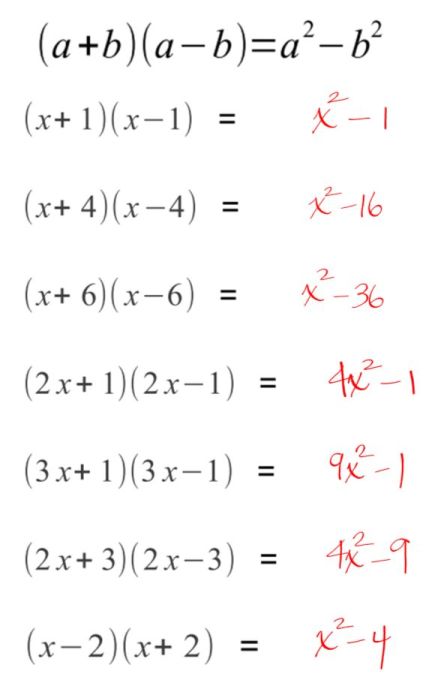 (a+b)(a−b)=a²−b²
(x+1)(x−1) = x²−1
(x+4)(x−4) = x²−16
(x+6)(x−6) = x²−36
(2x+1)(2x−1) = 4x²−1
(3x+1)(3x−1) = 9x²−1
(2x+3)(2x−3) = 4x²−9
(x−2)(x+2) = x²−4